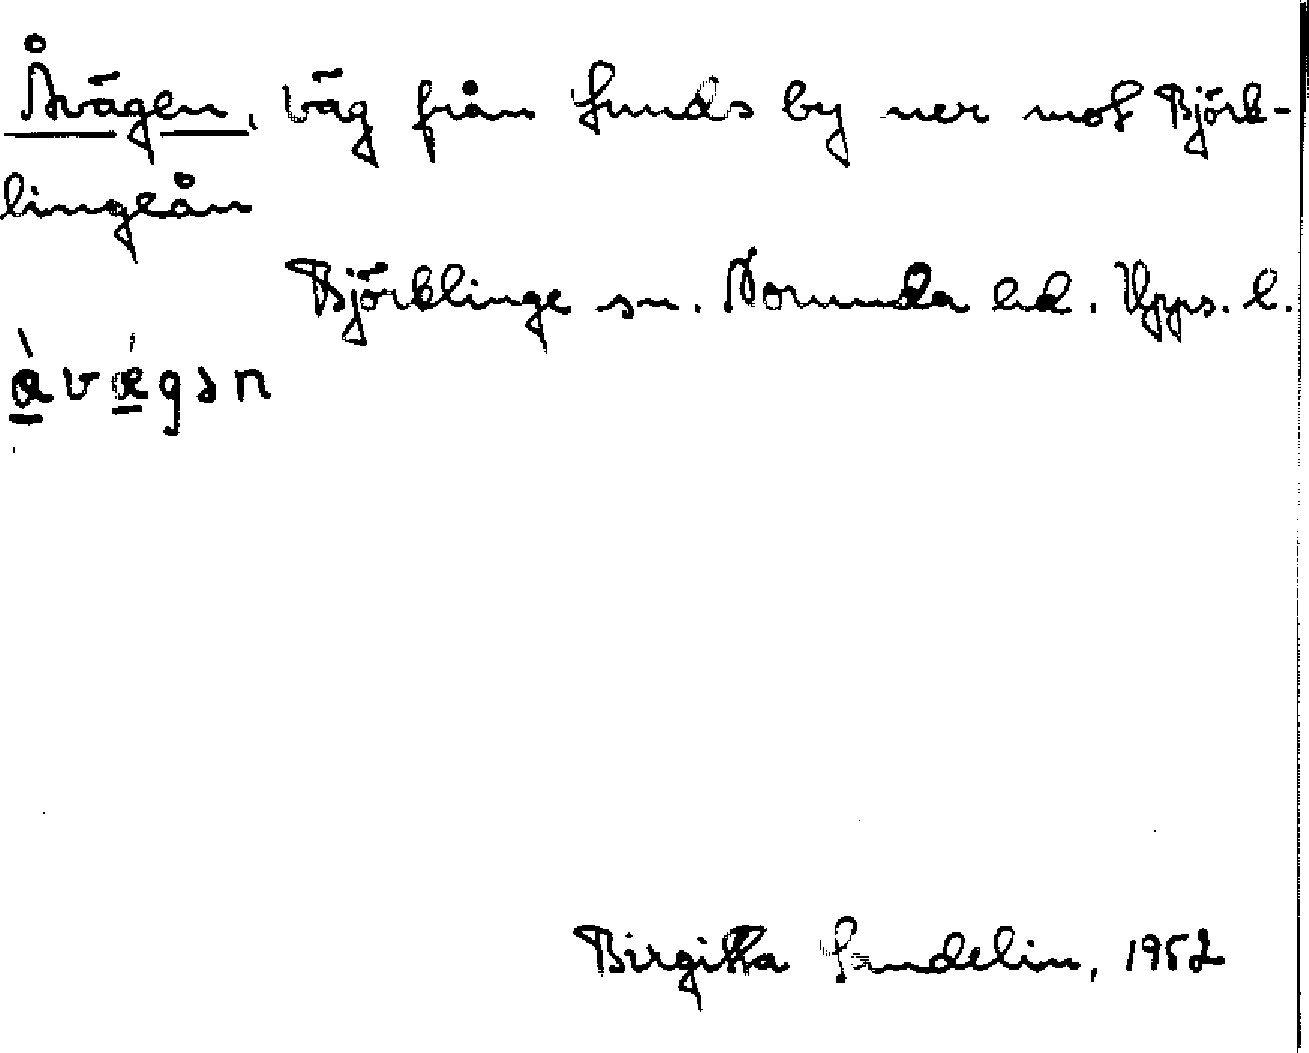 Åvägen, väg från Sunds by ner mot Björk-
lingeån
Björklinge sn. Norunda hd. Upps. l.
å̀vǽgən
Birgitta Sundelin, 1952